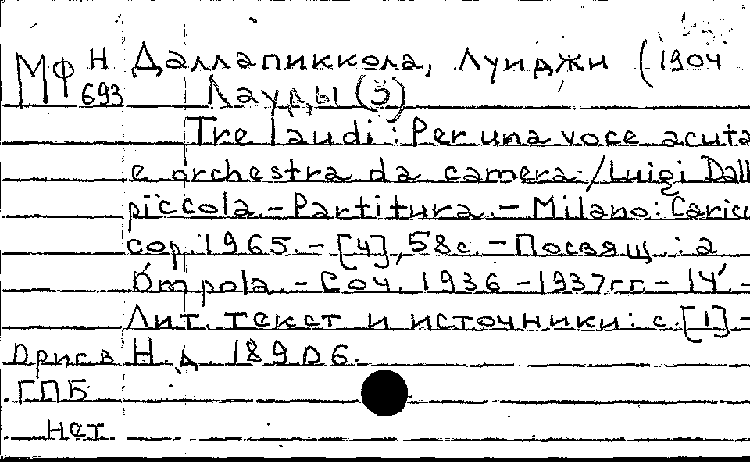 МФ Н Даллапиккола, Луиджи (1904
693 Лауды (3)
Tre laudi: Per una voce acuta
e orchestra da camera / Luigi Dall
piccola. - Partitura. - Milano: Caric
cop. 1965. - [4], 58 с. - Посвящ.: a
pola. - Соч. 1936-1937 гг. - 14' -
Лит. текст и источники: с. [1] -
Н.д. 189
ГПБ
нет